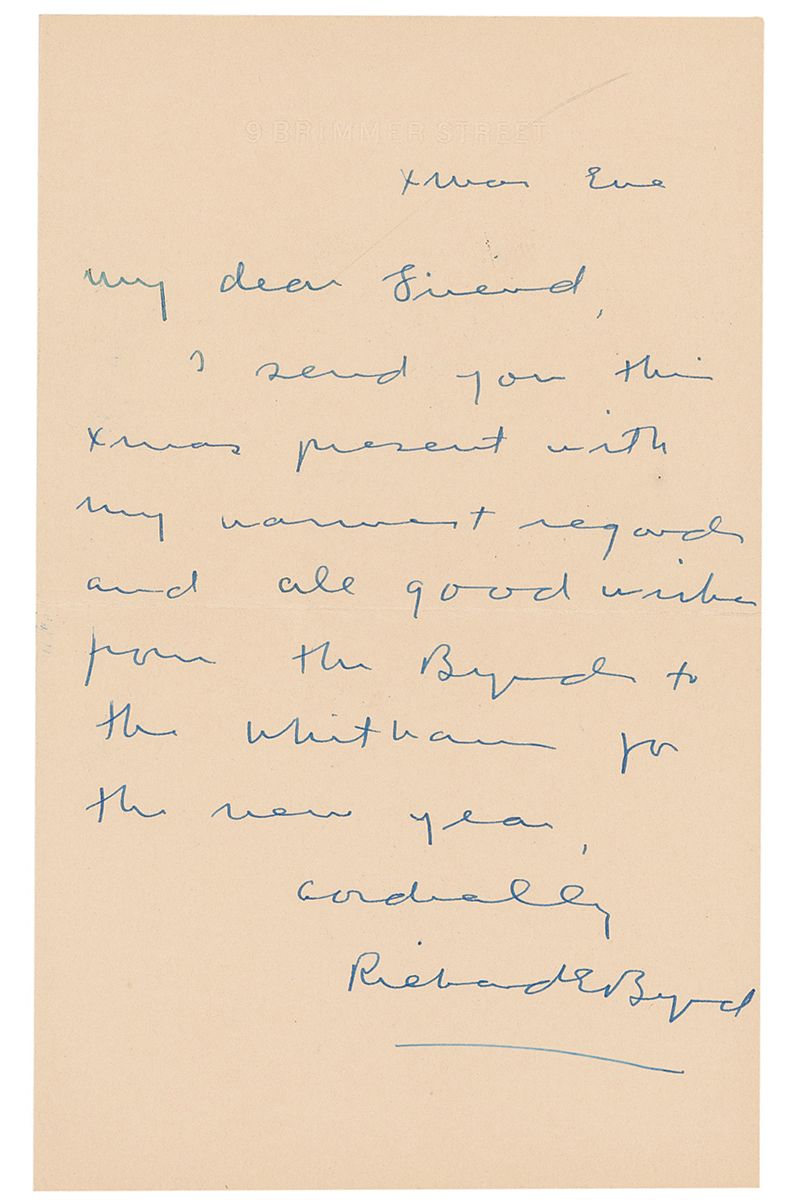 9 BRIMMER STREET
Xmas Eve
My dear Friend,
I send you this
Xmas present with
my warmest regards
and all good wishes
from the Byrds to
the for
the new year,
Cordially
Richard E Byrd